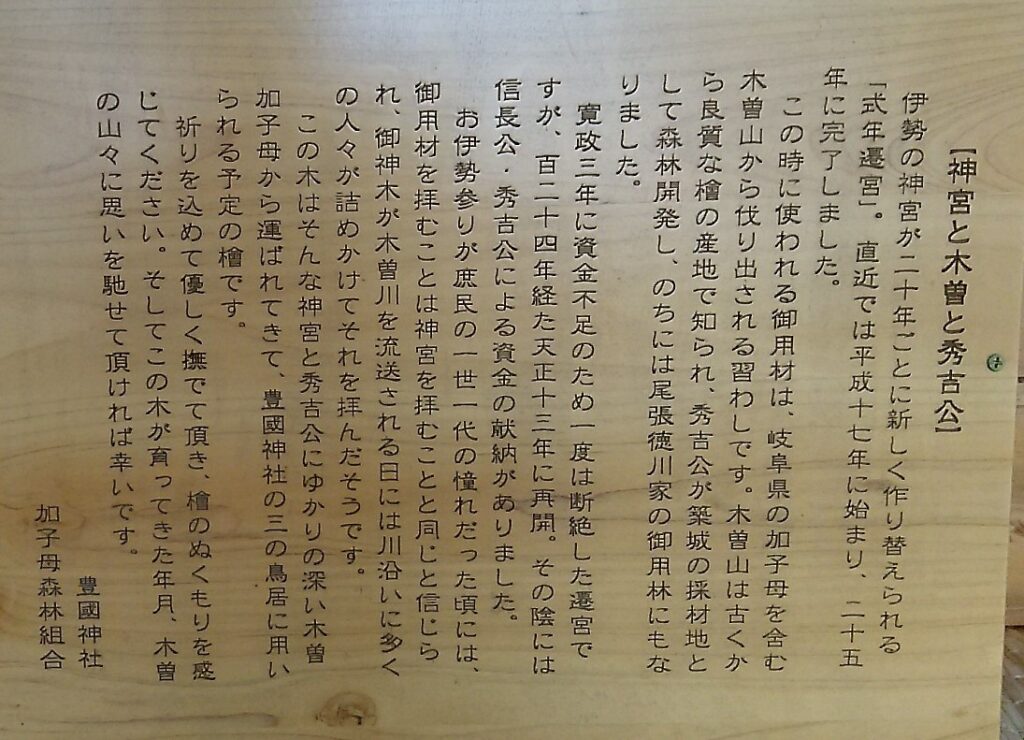 【神宮と木曽と秀吉公】
伊勢の神宮が二十年ごとに新しく作り替えられる
「式年遷宮」。直近では平成十七年に始まり、二十五
年に完了しました。
この時に使われる御用材は、岐阜県の加子母を含む
木曽山から伐り出される習わしです。木曽山は古くか
ら良質な檜の産地で知られ、秀吉公が築城の採材地と
して森林開発し、のちには尾張徳川家の御用林にもな
りました。
寛政三年に資金不足のため一度は断絶した遷宮で
すが、百二十四年経た天正十三年に再開。その陰には
信長公・秀吉公による資金の献納がありました。
お伊勢参りが庶民の一世一代の憧れだった頃には、
御用材を拝むことは神宮を拝むことと同じと信じら
れ、御神木が木曽川を流送される日には川沿いに多く
の人々が詰めかけてそれを拝んだそうです。
この木はそんな神宮と秀吉公にゆかりの深い木曽
加子母から運ばれてきて、豊國神社の三の鳥居に用い
られる予定の檜です。
祈りを込めて優しく撫でて頂き、檜のぬくもりを感
じてください。そしてこの木が育ってきた年月、木曽
の山々に思いを馳せて頂ければ幸いです。
豊國神社
加子母森林組合